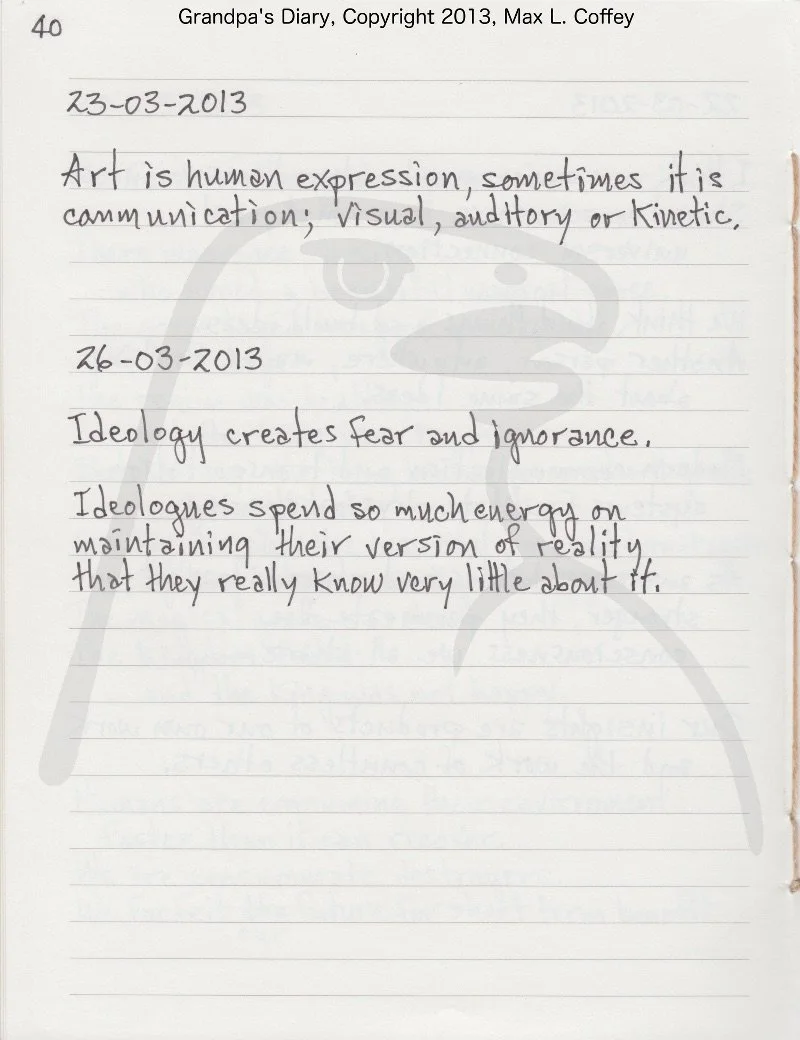 Grandpa's Diary, Copyright 2013, Max L. Coffey
40
23-03-2013
Art is human expression, sometimes it is
communication; visual, auditory or kinetic.
26-03-2013
Ideology creates fear and ignorance.
Ideologues spend so much energy on
maintaining their version of reality,
that they really know very little about it.